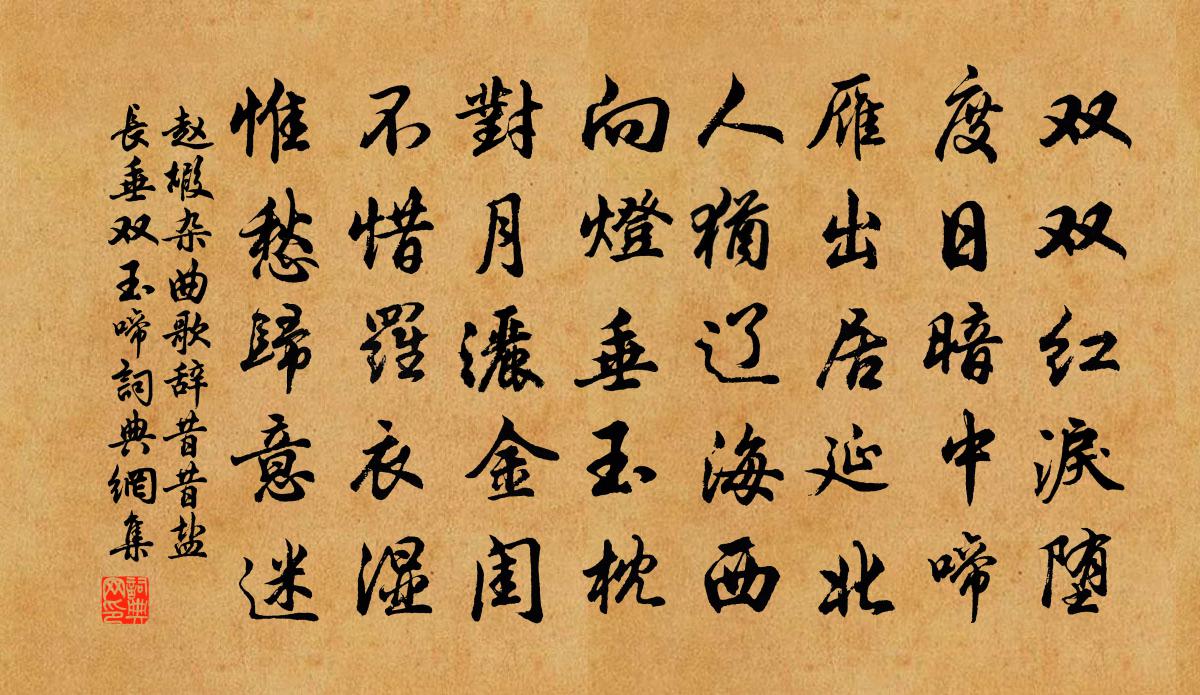 双双红淚堕
度日暗中啼
雁出居延北
人猶辽海西
向燈垂玉枕
對月灑金闺
不惜羅衣湿
惟愁歸意迷
赵嘏杂曲歌辞昔昔盐
長垂双玉啼詞典網集
詞典网印